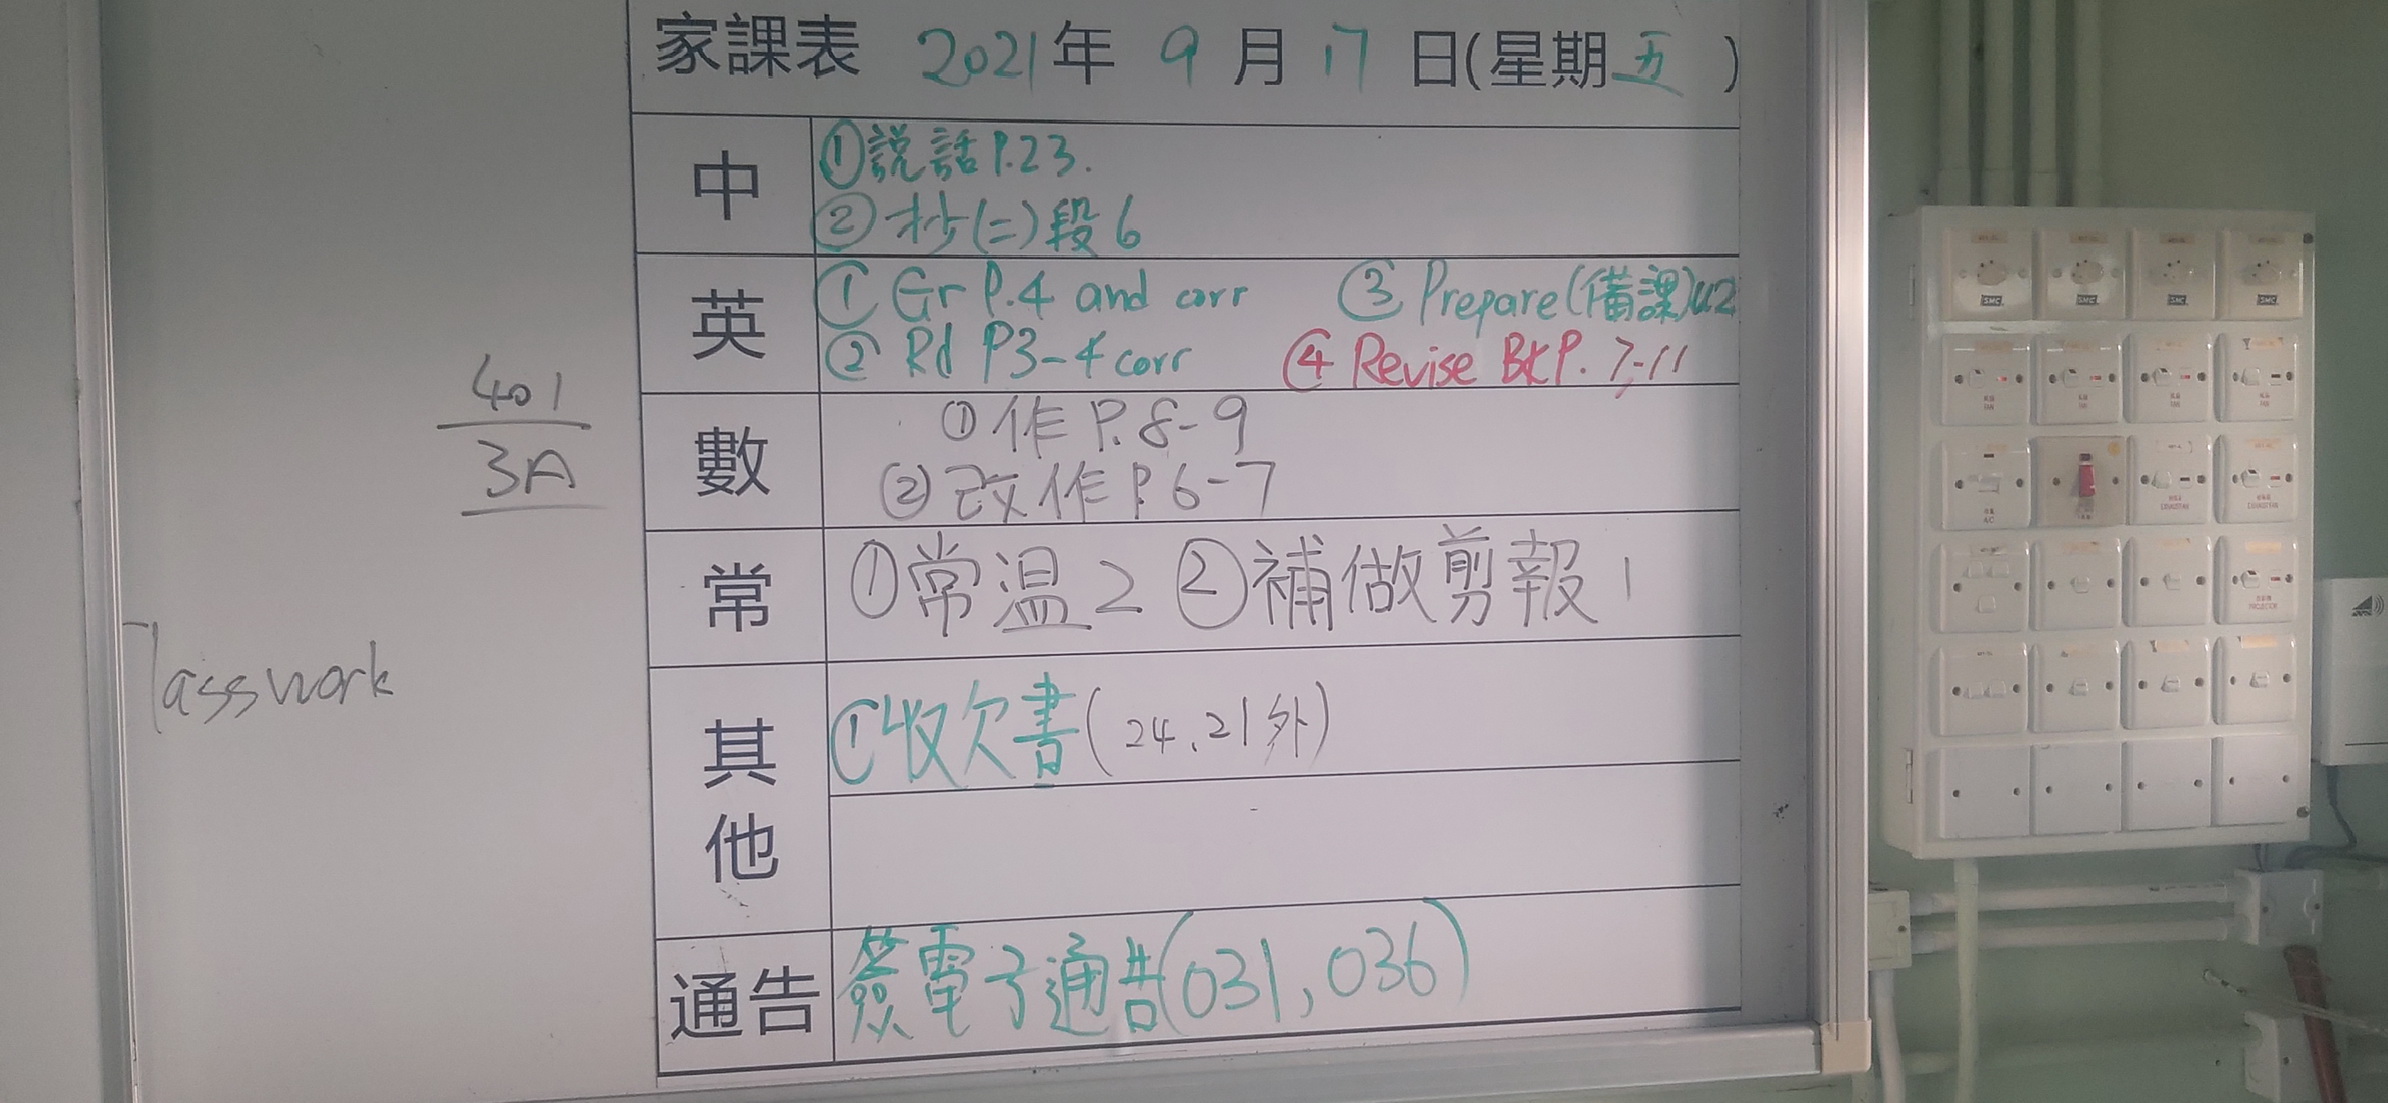 家課表 2021年 9月17日(星期五)
中
①説話P.23.
②抄(二)段6
英
①Gr P.4 and corr ③Prepare(備課)U2
②Rd P3-4 corr ④Revise Bk P. 7-11
數
①作P.8-9
②改作P.6-7
常
①常温2 ②補做剪報1
其他
①收欠書(24,21外)
通告
簽電子通告(031,036)
401
3A
lasswork
SMC SMC SMC SMC